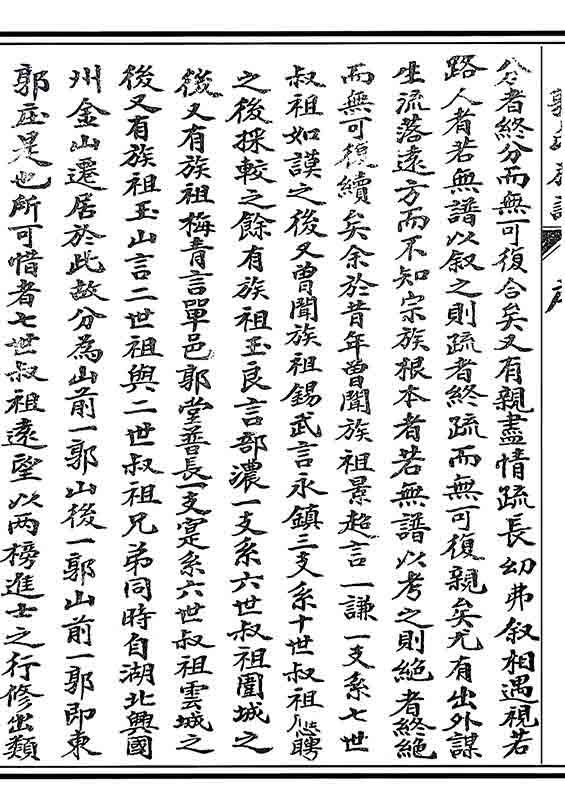 分者終分而無可復合矣又有親盡情疏長幼弗叙相遇視若
路人者若無譜以叙之則疏者終疏而無可復親矣尤有出外謀
生流落遠方而不知宗族根本者若無譜以考之則絶者終絶
而無可復續矣余於昔年曾聞族祖景超言一謙一支系七世
叔祖如謨之後又曾聞族祖錫武言永鎮三支系十世叔祖聘
之後採較之餘有族祖玉良言部濃一支系六世叔祖圍城之
後又有族祖梅青言單邑郭堂普長一支寔系六世叔祖雲城之
後又有族祖玉山言二世祖與二世叔祖兄弟同時自湖北興國
州金山遷居於此故分為山前一郭山後一郭山前一郭即東
郭庄是也所可惜者七世叔祖遠望以两榜進士之行修出類